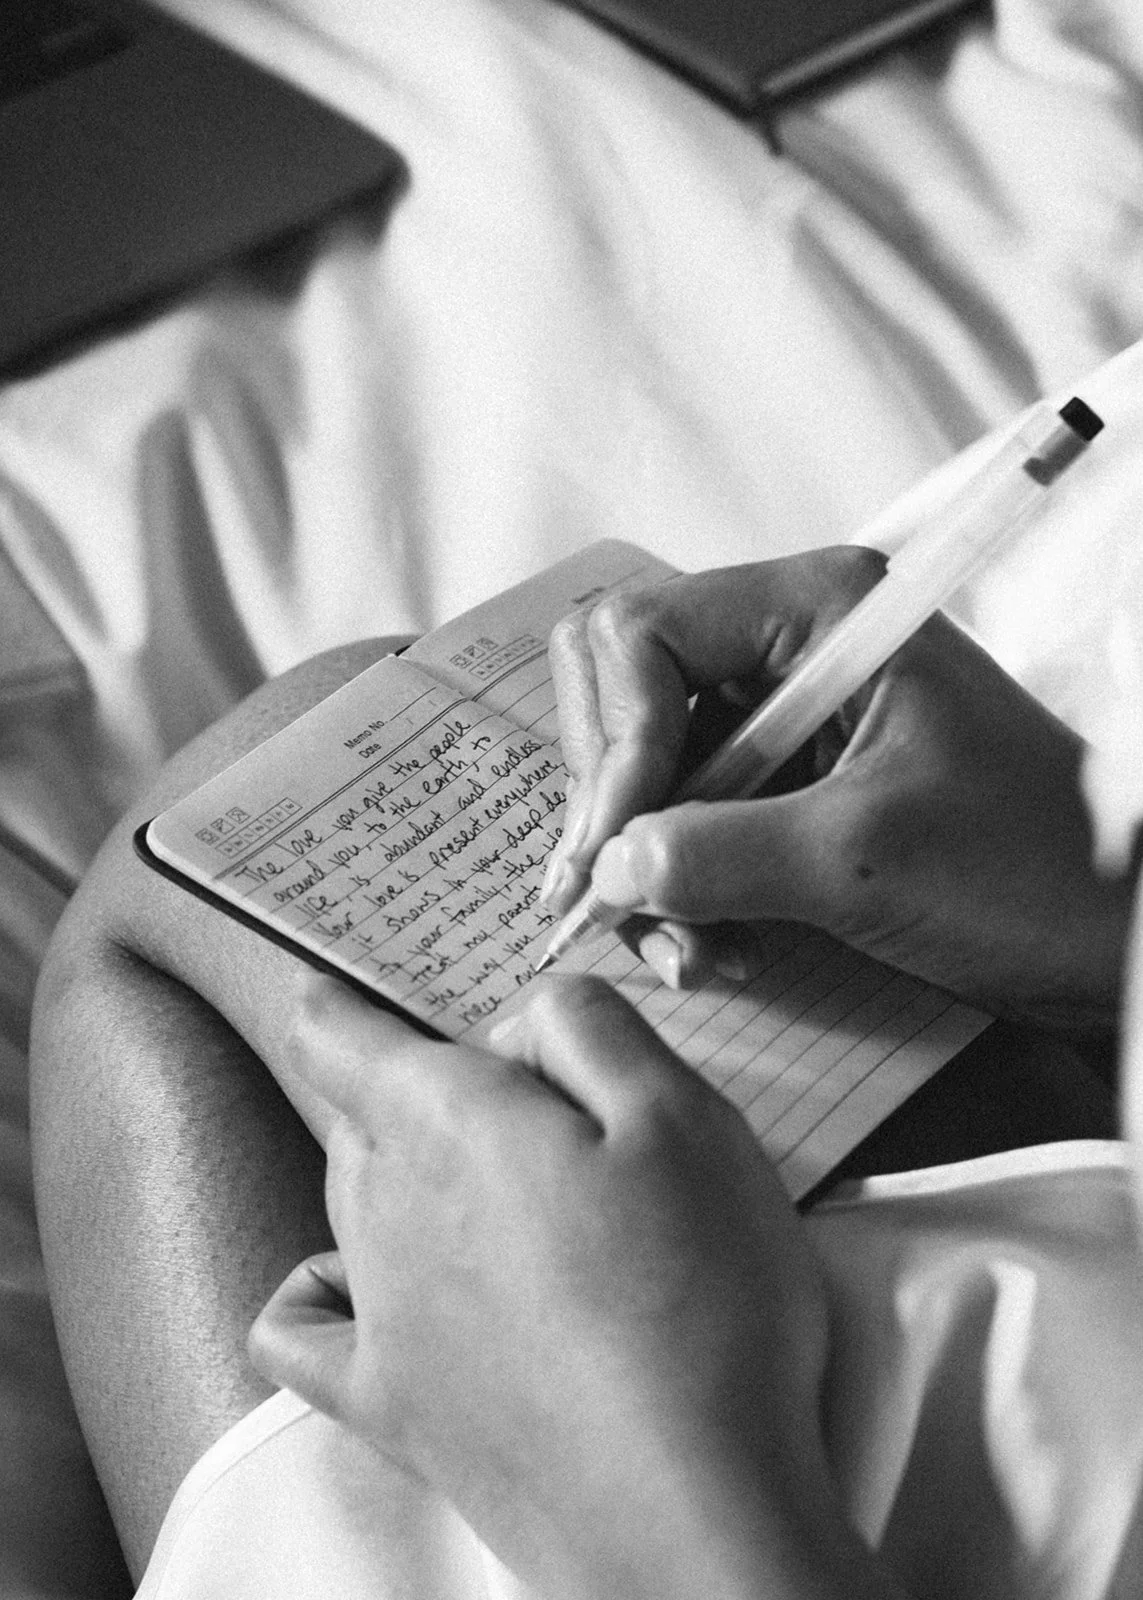 Memo No.
Date
The love you give the people
around you, to the earth, to
life, is abundant and endless
Your love is present everywhere,
it shows in your deep de
to your family, the wa
treat my parents
the way you to
niece